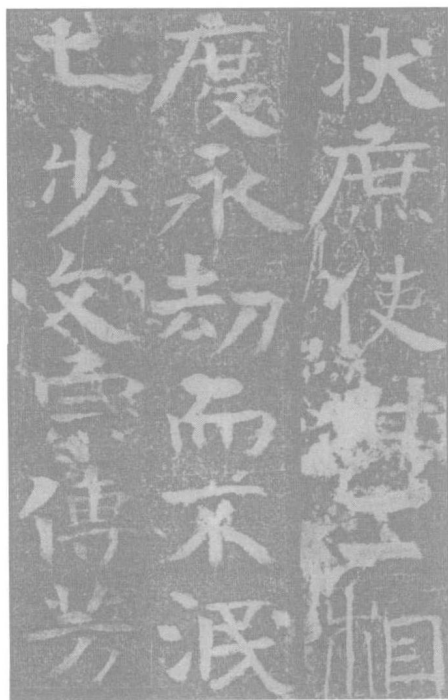 状庶使相
度永劫而不泯
七步文宗傳芳